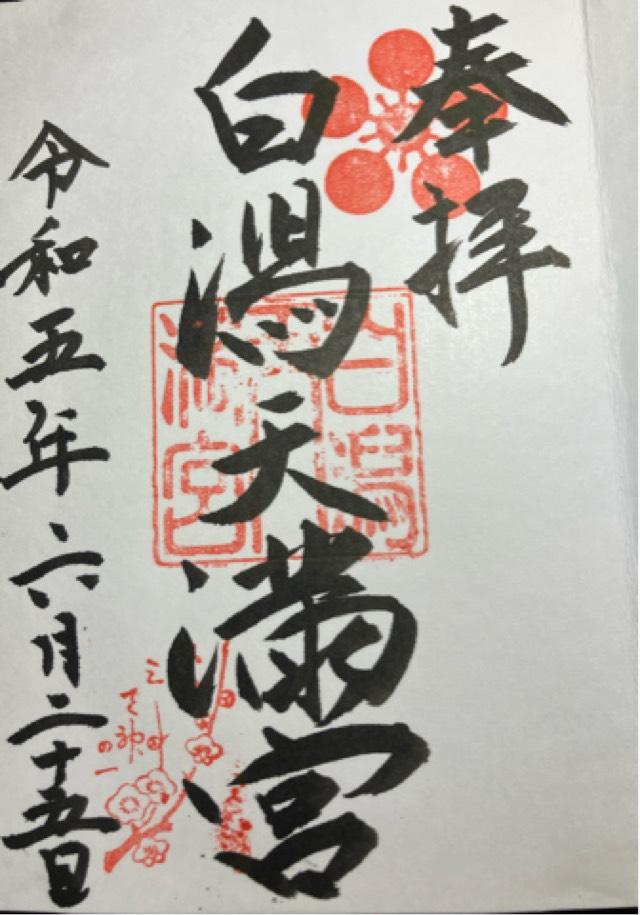 奉拝
白潟天満宮
令和五年六月二十五日
白潟
天満宮
三天神の一